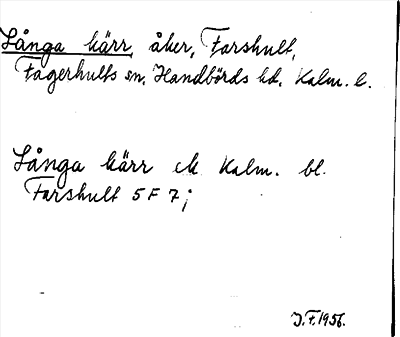 Långa kärr, åker, Farshult,
Fagerhults sn, Handbörds hd, Kalm. l.
Långa kärr ek Kalm. bl.
Farshult 5 F 7;
J.F. 1956.